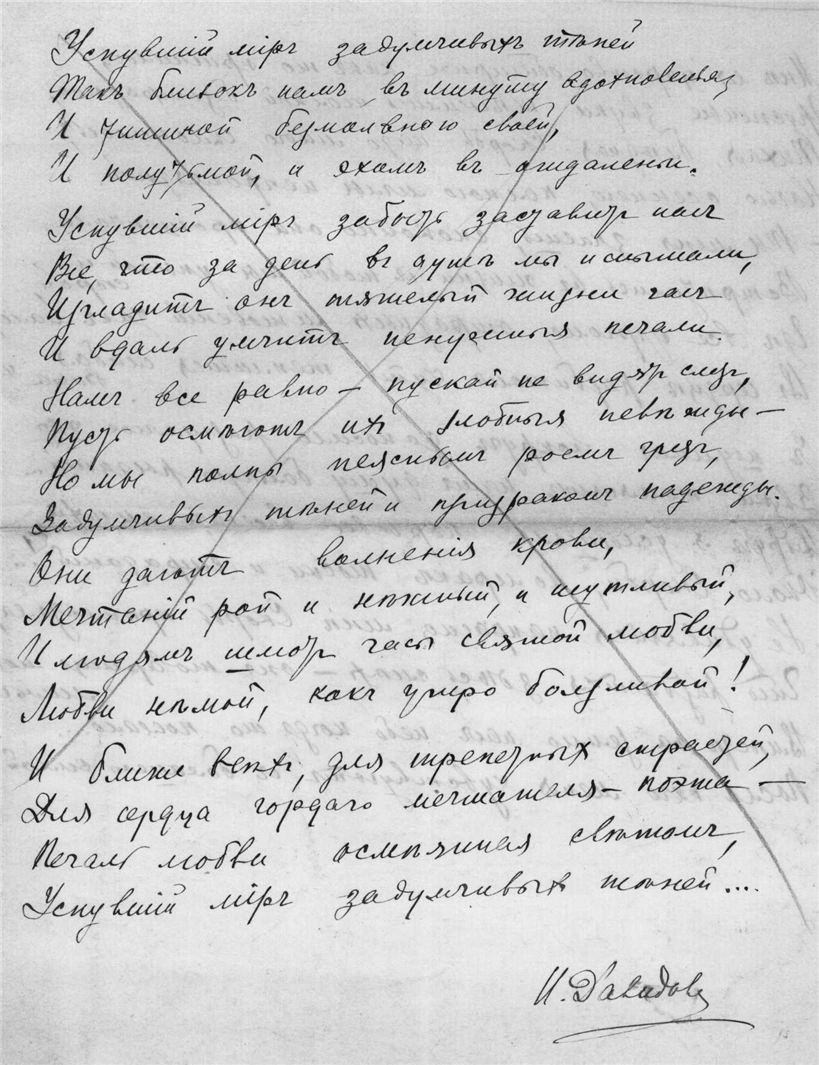 Уснувшій міръ задумчивыхъ тѣней
Такъ близокъ намъ въ минуту вдохновенья,
И тишиной безмолвною своей,
И полутьмой, и эхомъ въ отдаленьи.
Уснувшій міръ забыть заставитъ насъ
Все, что за день въ душѣ мы испытали,
Изгладитъ онъ тяжелый жизни часъ
И вдаль умчитъ ненужныя печали.
Намъ все равно – пускай не видятъ слезъ,
Пусть осмѣютъ ихъ злобныя невѣжды –
Но мы полны неяснымъ роемъ грезъ,
Задумчивыхъ тѣней и призракомъ надежды.
Они даютъ волненія крови,
Мечтаній рой и нѣжный, и шутливый,
И людямъ шлютъ часы святой любви,
Любви нѣмой, какъ утро боязливой!
И ближе всѣхъ, для трепетныхъ страстей,
Для сердца гордаго мечтателя – поэта –
Печаль любви осмѣянная свѣтомъ,
Уснувшій міръ задумчивыхъ тѣней....
И. Давидовъ